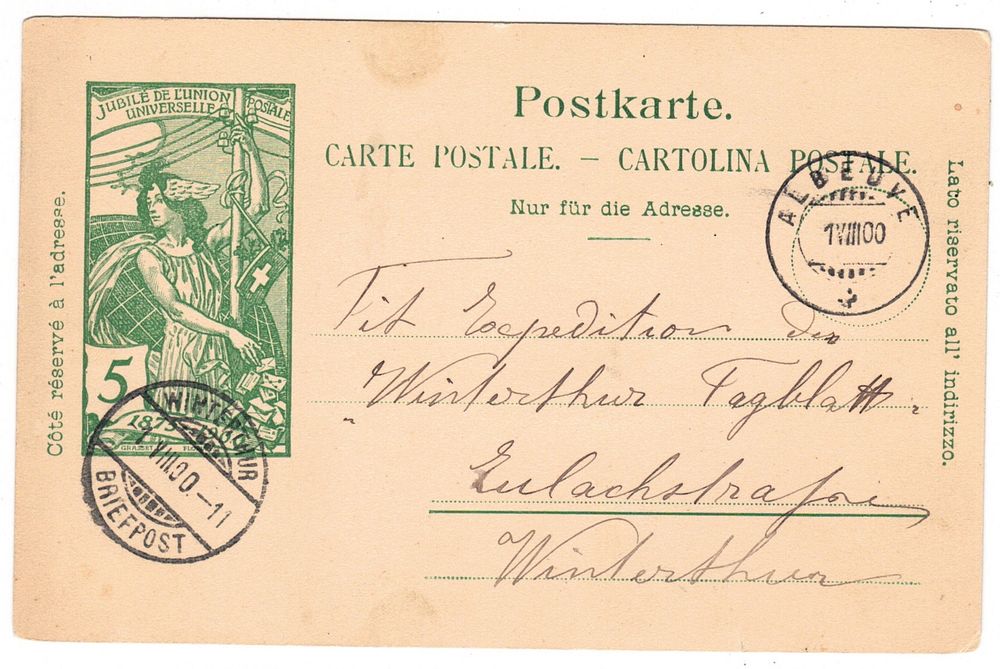 JUBILÉ DE L'UNION
POSTALE
UNIVERSELLE
5
1875
GRASSET
Côté réservé à l'adresse.
Postkarte.
CARTE POSTALE. — CARTOLINA POSTALE.
Nur für die Adresse.
Lato riservato all' indirizzo.
ALBEUVE
1VIII00
Tit Expedition des
"Winterthur Tagblatt"
Eulachstraße
Winterthur
WINTERTHUR
1 VIII.00.-11
BRIEFPOST